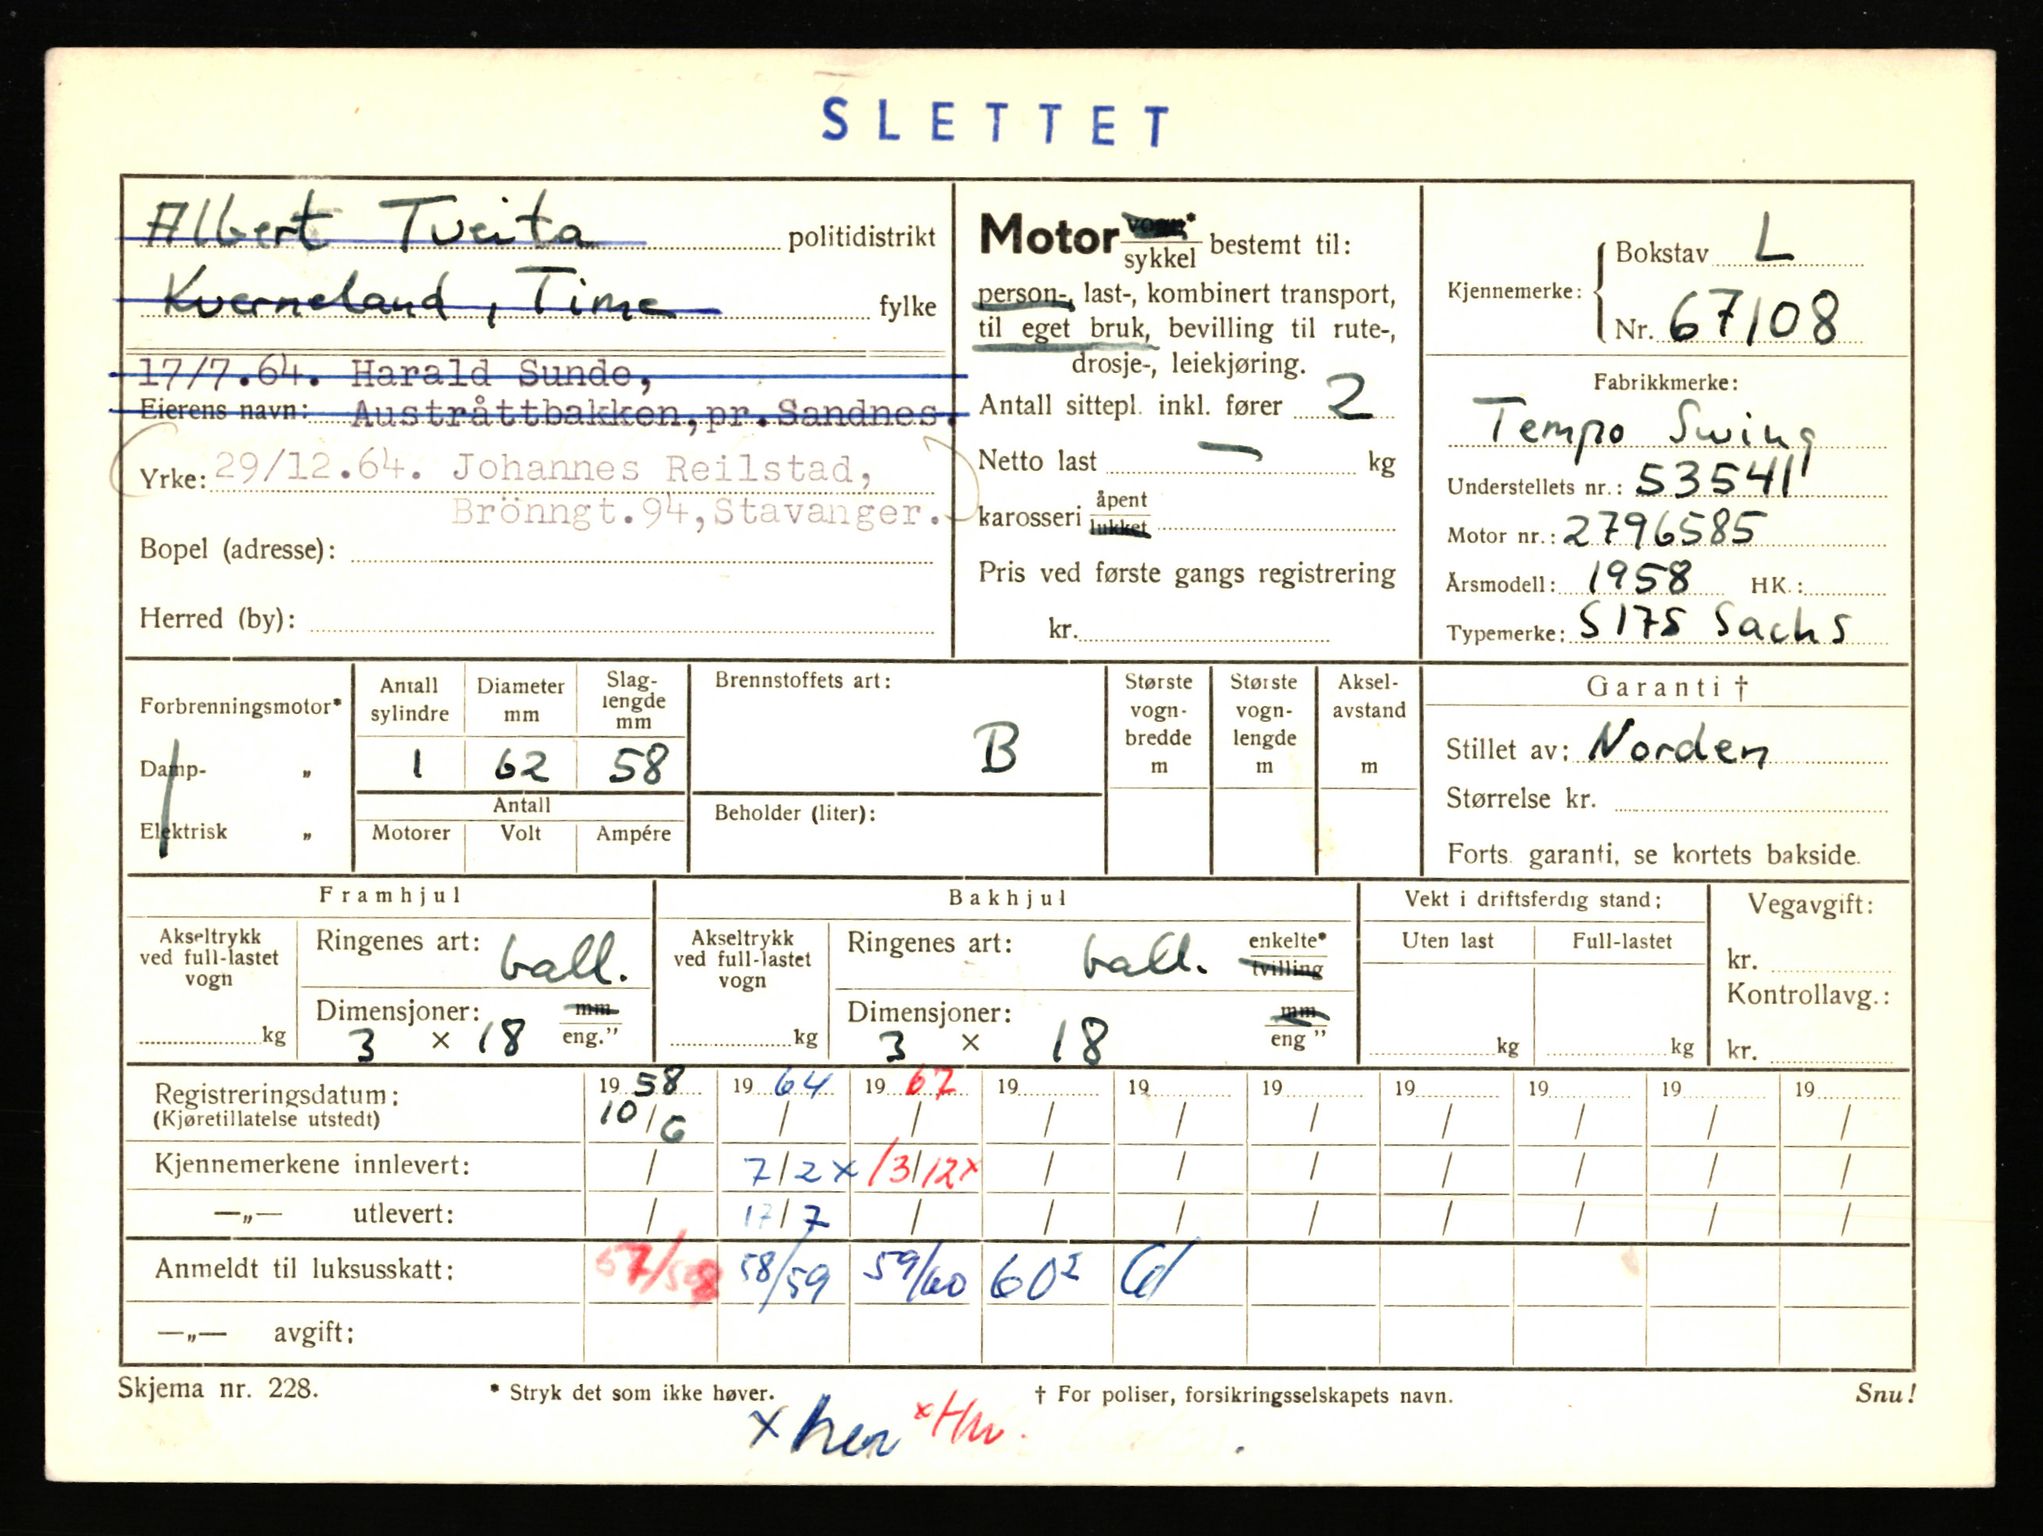 SLETTET
Albert Tveita politidistrikt
Kverneland, Time fylke
17/7.64. Harald Sunde,
Eierens navn: Austråttbakken, pr. Sandnes.
Yrke: 29/12.64. Johannes Reilstad,
Brönngt. 94, Stavanger.
Bopel (adresse):
Herred (by):
Motor vogn* / sykkel bestemt til:
person-, last-, kombinert transport,
til eget bruk, bevilling til rute-,
drosje-, leiekjøring.
Antall sittepl. inkl. fører 2
Netto last — kg
karosseri åpent / lukket
Pris ved første gangs registrering
kr.
Kjennemerke: Bokstav L
Nr. 67108
Fabrikkmerke:
Tempo Swing
Understellets nr.: 53541
Motor nr.: 2796585
Årsmodell: 1958 HK.:
Typemerke: S175 Sachs
Forbrenningsmotor*
Damp- „
Elektrisk „
Antall sylindre
Diameter mm
Slag-lengde mm
1 62 58
Antall
Motorer Volt Ampére
Brennstoffets art:
B
Beholder (liter):
Største vogn-bredde m
Største vogn-lengde m
Aksel-avstand m
Garanti †
Stillet av: Norden
Størrelse kr.
Forts. garanti, se kortets bakside.
Framhjul
Akseltrykk ved full-lastet vogn
kg
Ringenes art: ball.
Dimensjoner: mm
3 × 18 eng.”
Bakhjul
Akseltrykk ved full-lastet vogn
kg
Ringenes art: ball. enkelte* / tvilling
Dimensjoner: mm
3 × 18 eng ”
Vekt i driftsferdig stand:
Uten last Full-lastet
kg kg
Vegavgift:
kr.
Kontrollavg.:
kr.
Registreringsdatum: 19 58 19 64 19 67 19 19 19 19 19 19 19
(Kjøretillatelse utstedt) 10/6 / / / / / / / / /
Kjennemerkene innlevert: / 7/2 x 13/12 x / / / / / / /
—„— utlevert: / 17/7 / / / / / / / /
Anmeldt til luksusskatt: 57/58 58/59 59/60 60² 61
—„— avgift:
Skjema nr. 228. * Stryk det som ikke høver. † For poliser, forsikringsselskapets navn. Snu!
x her x Hv.